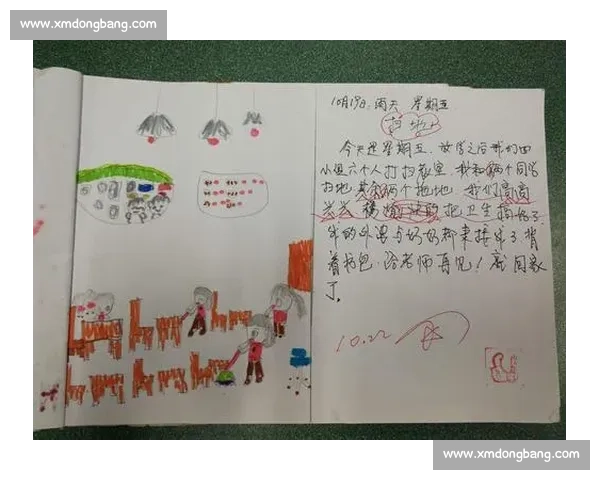 www.xmdongbang.com
10月19日 雨天 星期五
扫地
今天是星期五，放学之后我们四
小组六个人打扫教室，我和两个同学
扫地 其余两个拖地，我们高高
兴兴 快的把卫生搞好了
的外婆与奶奶都来接 了 背
着书包，给老师再见！就回家
了。
10.22
www.xmdongbang.com